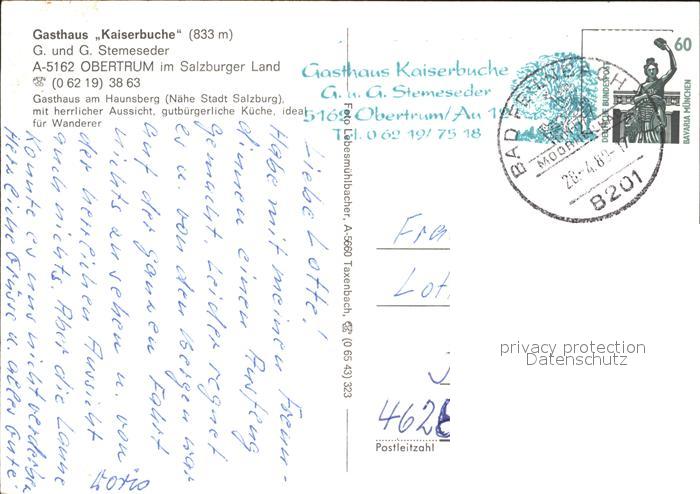 Gasthaus „Kaiserbuche“ (833 m)
G. und G. Stemeseder
A-5162 OBERTRUM im Salzburger Land
☏ (0 62 19) 38 63
Gasthaus am Haunsberg (Nähe Stadt Salzburg),
mit herrlicher Aussicht, gutbürgerliche Küche, ideal
für Wanderer
Gasthaus Kaiserbuche
G. u. G. Stemeseder
5162 Obertrum/Au 1
Tel. 0 62 19/ 75 18
Foto Löbesmühlbacher, A-5660 Taxenbach, ☏ (0 65 43) 323
60
DEUTSCHE BUNDESPOST
BAVARIA MÜNCHEN
BAD FEILNBACH
MOORHEILBAD
8201
Liebe Lotte!
Habe mit meinen Freun-
dinnen einen Ausflug
gemacht. Leider regnet
es u. von den Bergen war
auf der ganzen Fahrt
nichts zu sehen u. von
der herrlichen Aussicht
auch nichts. Aber die Laune
konnte es uns nicht verderben
Herzliche Grüße u. alles Gute.
Fra
Lot
462
Postleitzahl
privacy protection
Datenschutz